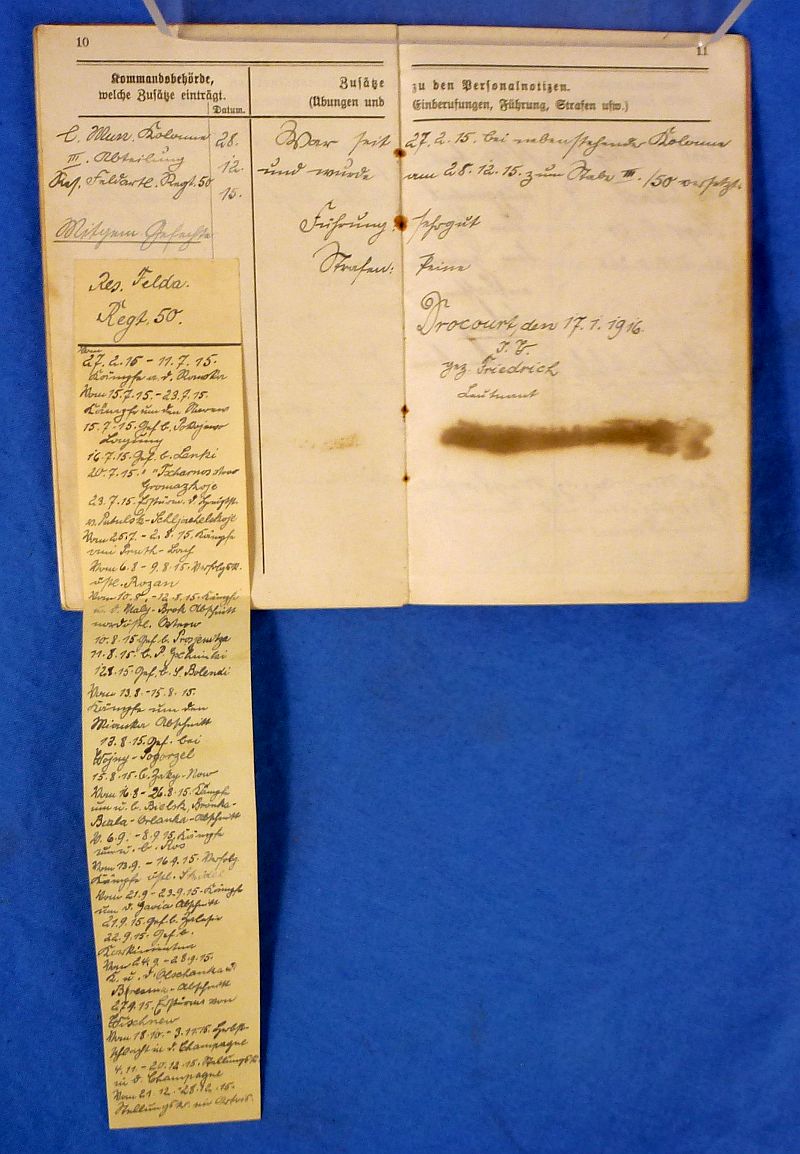 10
11
Kommandobehörde,
welche Zusätze einträgt.
Datum.
Zusätze
(Übungen und
zu den Personalnotizen.
Einberufungen, Führung, Strafen usw.)
l. Mun. Kolonne
III. Abteilung
Res. Feldartl. Regt. 50
28.
12.
15.
War seit 27.2.15 bei nebenstehender Kolonne
und wurde am 28.12.15. zum Stabe III./50 versetzt.
Führung: sehr gut
Strafen: keine
Drocourt, den 17.1.1916.
I. V.
gez. Friedrich
Leutnant
Mitgem. Gefechte
Res. Felda.
Regt. 50.
Vom
27.2.15 – 11.7.15.
Kämpfe a. d.
Vom 15.7.15. – 23.7.15.
Kämpfe um den Narew
15.7.15. Gef. b.
16.7.15. Gef. b. Lenki
20.7.15. " "
Gromazkoje
23.7.15. Erstürm. d.
v. Pultusk-
Vom 25.7. – 2.8.15. Kämpfe
vom Pruth-Bach
Vom 6.8 – 9.8.15. Verfolgsk.
östl. Rozan
Vom 10.8. – 12.8.15. Kämpfe
a. d. Maly-Brok Abschnitt
nordöstl. Ostrow
10.8.15. Gef. b.
11.8.15. b.
12.8.15. Gef. b. S. Bolendi
Vom 13.8. – 15.8.15.
Kämpfe um den
Abschnitt
13.8.15. Gef. bei
Wojny-Pogorzel
15.8.15. b. Zaky-Now
Vom 16.8 – 26.8.15. Kämpfe
um u. b. Bielsk, Bronka-
Biala-Orlanka-Abschnitt
V. 6.9. – 8.9.15. Kämpfe
um u. b. Ros
Vom 13.9. – 16.9.15. Verfolg.
Kämpfe östl.
Vom 21.9 – 23.9.15. Kämpfe
um d. Gavia Abschnitt
21.9.15. Gef. b.
22.9.15. Gef. b.
Vom 24.9. – 28.9.15.
K. u. d. Olschanka u.
Beresina-Abschnitt
27.9.15. Erstürm. von
Wischnew
Vom 18.10. – 3.11.15. Herbst-
schlacht in d. Champagne
4.11. – 20.12.15. Stellungsk.
in d. Champagne
Vom 21.12. – 28.12.15.
Stellungsk. im Artois.